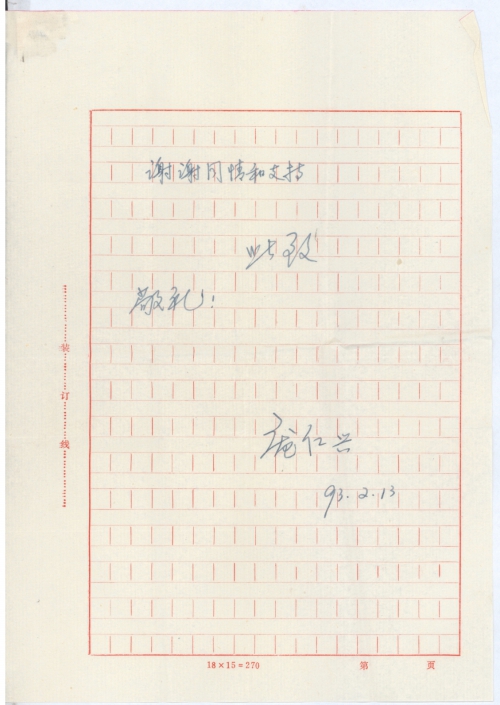 谢谢同情和支持
此致
敬礼！
庞仁兴
93.2.13
装订线
18×15=270 第 页